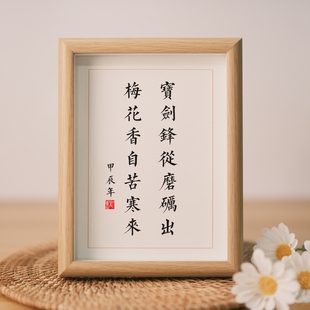 寶劍鋒從磨礪出
梅花香自苦寒來
甲辰年